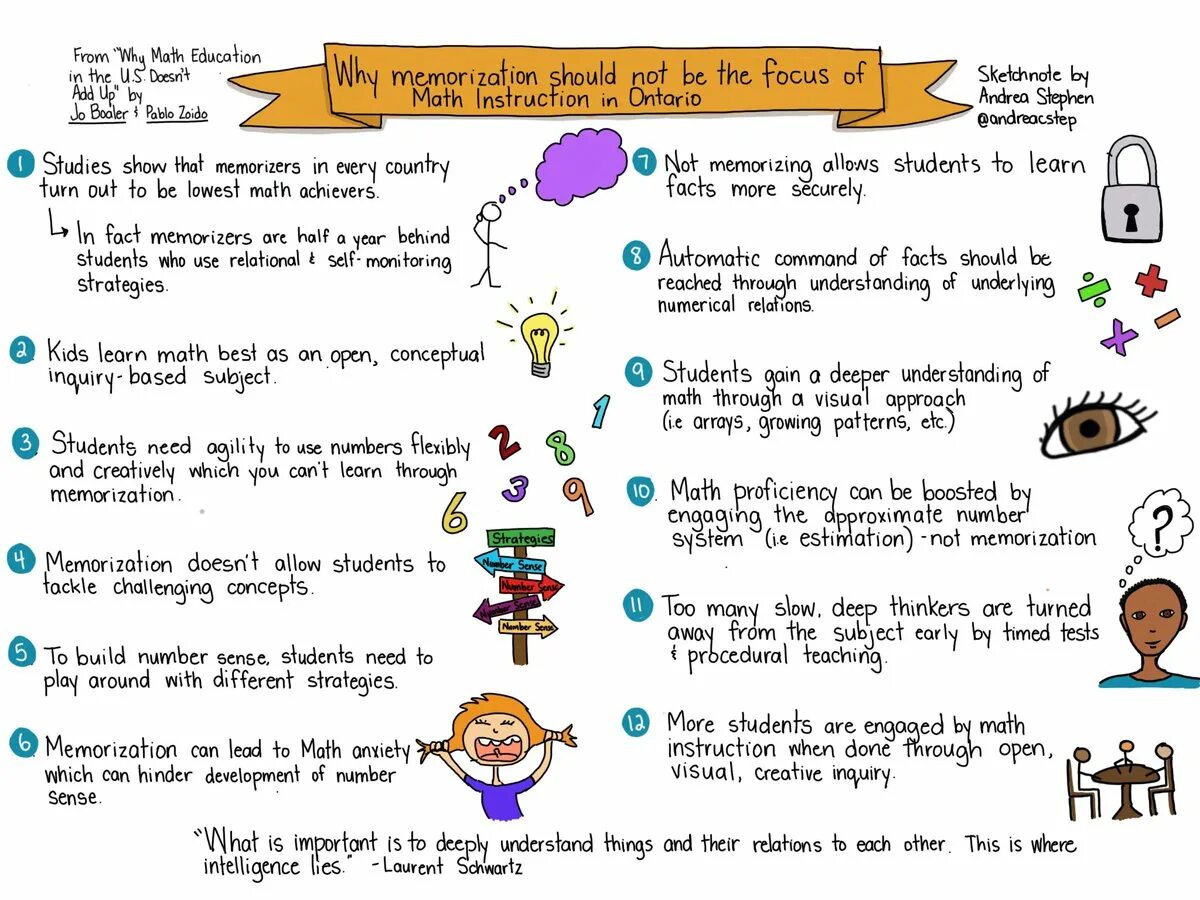 From "Why Math Education
in the U.S. Doesn't
Add Up" by
Jo Boaler & Pablo Zoido
Why memorization should not be the focus of
Math Instruction in Ontario
Sketchnote by
Andrea Stephen
@andreacstep
1 Studies show that memorizers in every country
turn out to be lowest math achievers.
In fact memorizers are half a year behind
students who use relational & self-monitoring
strategies.
2 Kids learn math best as an open, conceptual
inquiry-based subject.
3 Students need agility to use numbers flexibly
and creatively which you can't learn through
memorization.
1
2
8
3
9
6
4 Memorization doesn't allow students to
tackle challenging concepts.
Strategies
Number Sense
Number Sense
Number Sense
Number Sense
5 To build number sense, students need to
play around with different strategies.
6 Memorization can lead to Math anxiety
which can hinder development of number
sense.
7 Not memorizing allows students to learn
facts more securely.
8 Automatic command of facts should be
reached through understanding of underlying
numerical relations.
÷ +
x −
9 Students gain a deeper understanding of
math through a visual approach
(i.e arrays, growing patterns, etc.)
10 Math proficiency can be boosted by
engaging the approximate number
system (i.e estimation) - not memorization
?
11 Too many slow, deep thinkers are turned
away from the subject early by timed tests
& procedural teaching.
12 More students are engaged by math
instruction when done through open,
visual, creative inquiry.
"What is important is to deeply understand things and their relations to each other. This is where
intelligence lies." -Laurent Schwartz